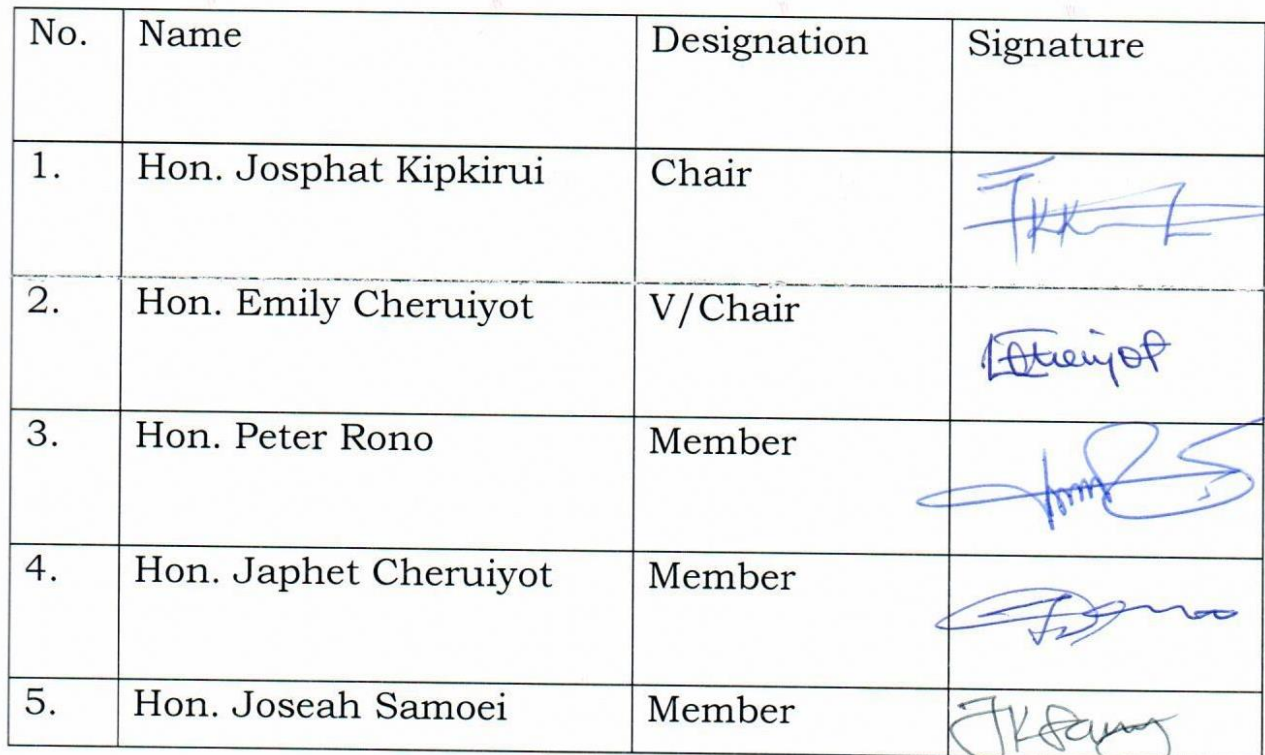 No. Name Designation Signature
1. Hon. Josphat Kipkirui Chair
2. Hon. Emily Cheruiyot V/Chair
3. Hon. Peter Rono Member
4. Hon. Japhet Cheruiyot Member
5. Hon. Joseah Samoei Member